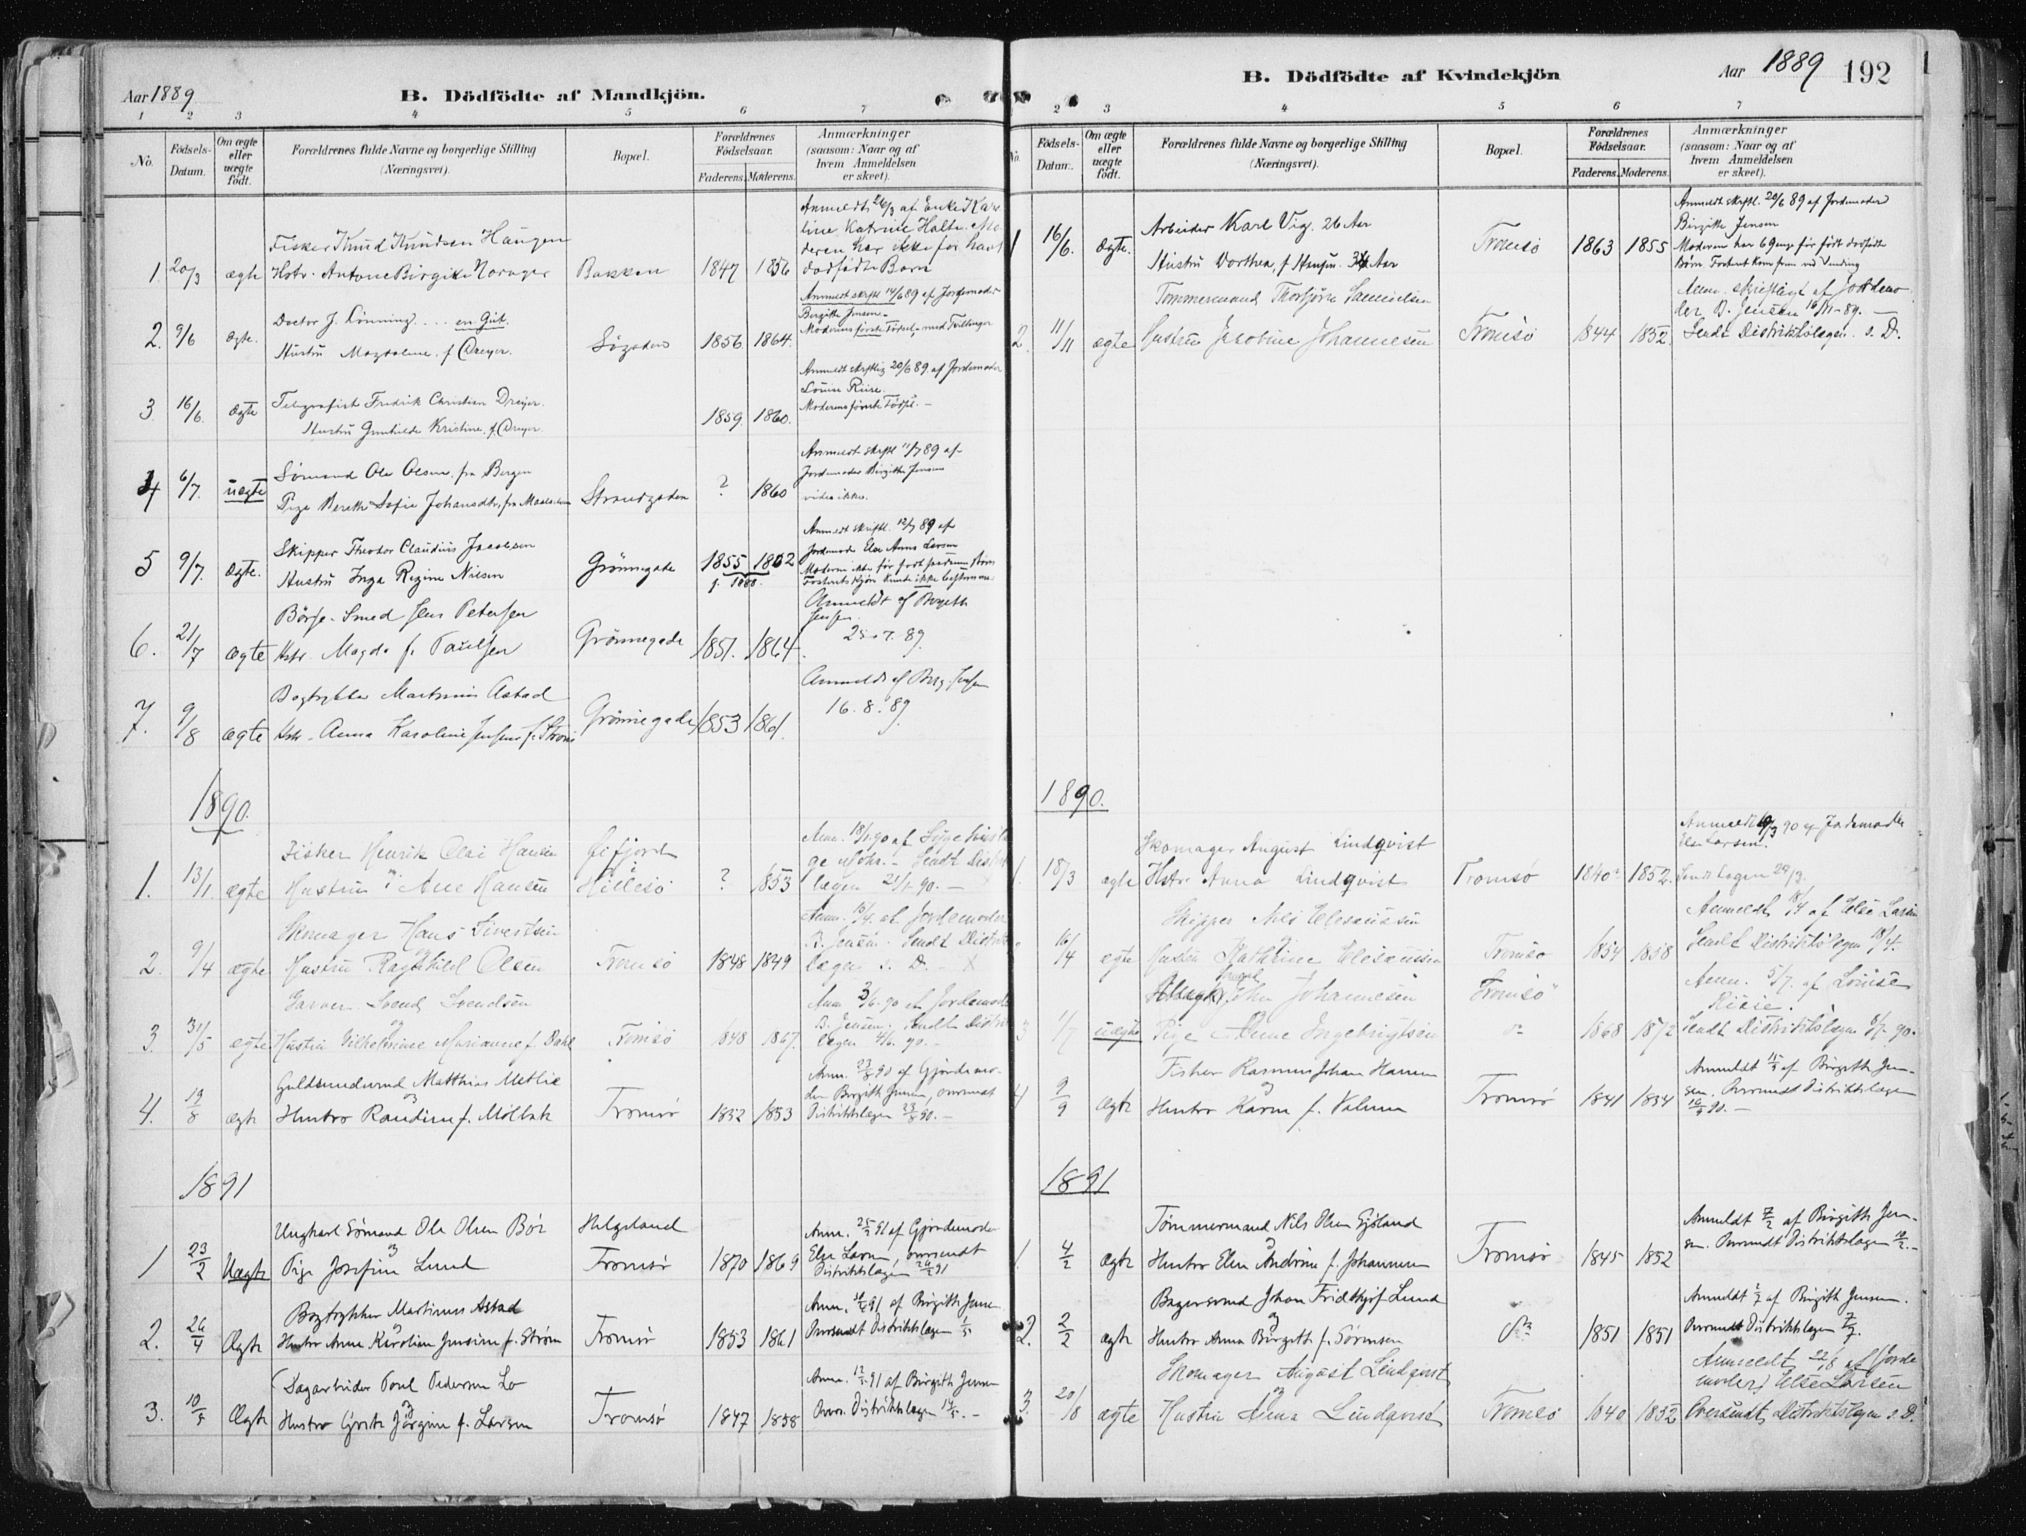 Aar 1889
B. Dödfödte af Mandkjön.
1 2 3 4 5 6 7
No.
Födsels-Datum.
Om ægte eller uægte födt.
Forældrenes fulde Navne og borgerlige Stilling
(Næringsvei).
Bopæl.
Forældrenes Födselsaar.
Faderens. Moderens.
Anmærkninger
(saasom: Naar og af
hvem Anmeldelsen
er skeet).
Anmeldt 26/3 af Enke Karo
line Katrine Holte. Mo
deren har ikke før havt
dødfødte Børn
Fisker Knud Knudsen Haugen
1. 20/3 ægte Hstr. Antone Birgitte Norager Bakken 1847 1856
Anmeldt skrftl 14/6 89 af Jordemoder
Birgitte Jensen
Moderens første Fødsel, med Tvillinger
Doctor J. Lönning .... en Gut.
2. 9/6 ægte. Hustru Magdalene f. Dreyer. Sögaden 1856 1864.
Anmeldt skriftlig 20/6 89. af Jordemoder
Louise Riise.
Moderens første Fødsel. —
3 16/6. ægte Telegrafist Fredrik Christian Dreyer.
Hustru Gunhilda Kristine f. Dreyer. 1859 1860.
Anmeldt skrftl 11/7 89 af
Jordemoder Birgitte Jensen
vides ikke.
Sømand Ole Olsen, fra Bergen
4 6/7. uægte Pige Berethe Sofie Johansdtr, fra Maalselven Strandgaden ? 1860
Anmeldt skriftl. 12/7 89 af
Jordemoder Else Anna Larsen
Skipper Theodor Claudius Jacobsen
5 9/7. ægte. Hustru Inga Regine Nilsen Grönnegade 1855 1862
g. 1888.
Fosterets Kjön kunde ikke bestemmes
Börse-Smed Jens Petersen
6. 21/7 ægte Hstr. Magda f. Paulsen Grönnegade 1851. 1864.
Anmeldt af Birgith
Jensen.
25.7.89.
Bogtrykker Martinus Astad
7. 9/8 ægte Hstr. Anna Karoline Jensen f. Strøm Grönnegade 1853 1861.
Anmeldt af Birg. Jensen
16.8.89.
1890.
Fisker Henrik Olai Hansen Gifjord
1. 13/1. ægte Hustru Ane Hansen Hillesö ? 1853
Skomager Hans Sivertsen
2. 9/4 ægte Hustru Ragnhild Olsen Tromsö 1848 1849
Anm. 15/4. af Jordemoder
B. Jensen. Sendt Distrikts
lægen s. D. — X
Garver Svend Svendsen
3. 31/5 ægte Hustru Vilhelmine Marianne f. Dahl Tromsö 1848 1867.
Anm. 3/6.90 af Jordemoder
B. Jensen. Sendt Distrikts
lægen 4/6. 90. —
Guldsmedsvend Matthias Methie
4. 19/8 ægte Hustro Randine f. Mölbak Tromsø 1852 1853
Anm. 23/8 90 af Gjordemo-
der Birgith Jensen, oversendt
Distriktslægen 23/8 90. —
1891
Ungkarl Sömand Ole Olsen Bör Helgeland
1 23/2 Uægte Pige Josefine Lund Tromsø 1870 1869
Anm. 25/2 91 af Gjordemoder
Else Larsen, oversendt
Distriktslægen 26/2 91
Bogtrykker Martinus Astad
2. 26/4 Ægte Hustro Anne Karoline Jensine f. Ström Tromsø 1853 1861
Anm. 30/4 91 af Birgith Jensen
Oversendt Distriktslægen 1/5
Dagarbeider Poul Pedersen Lo
3. 10/5 Ægte Hustro Gjertr. Jørgine f. Larsen Tromsø 1847 1858
Anm. 12/5 91 af Birgith Jensen
Overs. Distriktslægen 14/5. —
B. Dödfödte af Kvindekjön
Aar 1889
192
2 3 4 5 6 7
No.
Födsels-Datum.
Om ægte eller uægte födt.
Forældrenes fulde Navne og borgerlige Stilling
(Næringsvei).
Bopæl.
Forældrenes Födselsaar.
Faderens. Moderens.
Anmærkninger
(saasom: Naar og af
hvem Anmeldelsen
er skeet).
Anmeldt skrftl. 20/6 89 af Jordemoder
Birgitte Jensen
Moderen har 6 Gange før født dødfødte
Børn
Arbeider Karl Vig. 26 Aar
1 16/6. Ægte. Hustru Dorthea, f. Hansen. 34 Aar Tromsø 1863 1855
Tømmermand Thorbjørn Samuelsen
2. 11/11 ægte Hustru Jacobine Johannesen Tromsö 1844 1852.
Anm. skriftligt af Jordemo
der B. Jensen 16/11-89. —
Sendt Distriktslægen s. D.
1890.
Skomager August Lindqvist
1. 18/3 ægte Hstr. Anna Lindqvist Tromsø 1840 1852.
Anmeldt 19/3 90 af Jordemoder
Else Larsen.
Sendt Lægen 24/3.
Skipper Nils Eleseussen
16/4 ægte Hustru Mathine Eleseussen Tromsø 1854 1858
Anmeldt 18/4 af Else Larsen
Sendt Distriktslægen 18/4.
John Johannesen Tromsö
3 1/7 uægte Pige Anne Ingebrigtsen do 1868 1872
Anm. 5/7. af Louise
Riise.
Sendt Distriktslægen 8/7. 90.
Fisker Rasmus Johan Hansen
4 9/9 Ægte Hustro Karen f. Volmen Tromsø 1841 1834
Anmeldt 15/9 af Birgith Jen-
sen. Oversendt Distriktslægen
16/9 90. —
1891
Tømmermand Nils Olsen Gjøland
1. 4/2 Ægte Hustro Elen Andrine f. Johannesen Tromsø 1845 1852
Anmeldt 7/2 af Birgith Jen-
sen. Oversendt Distriktslægen 10/2. —
Bagersvend Johan Fridthjof Lund
2. 2/2 ægte Hustro Anna Birgith f. Sörensen do 1851 1851
Anmeldt 7/2 af Birgith Jensen.
Oversendt Distriktslægen 7/2.
Skomager August Lindqvist
3. 20/8 ægte Hustru Anna Lindqvist Tromsö 1840 1852
Anmeldt 22/8 af Jorde
moder Else Larsen
Oversendt Distriktslægen s. D.